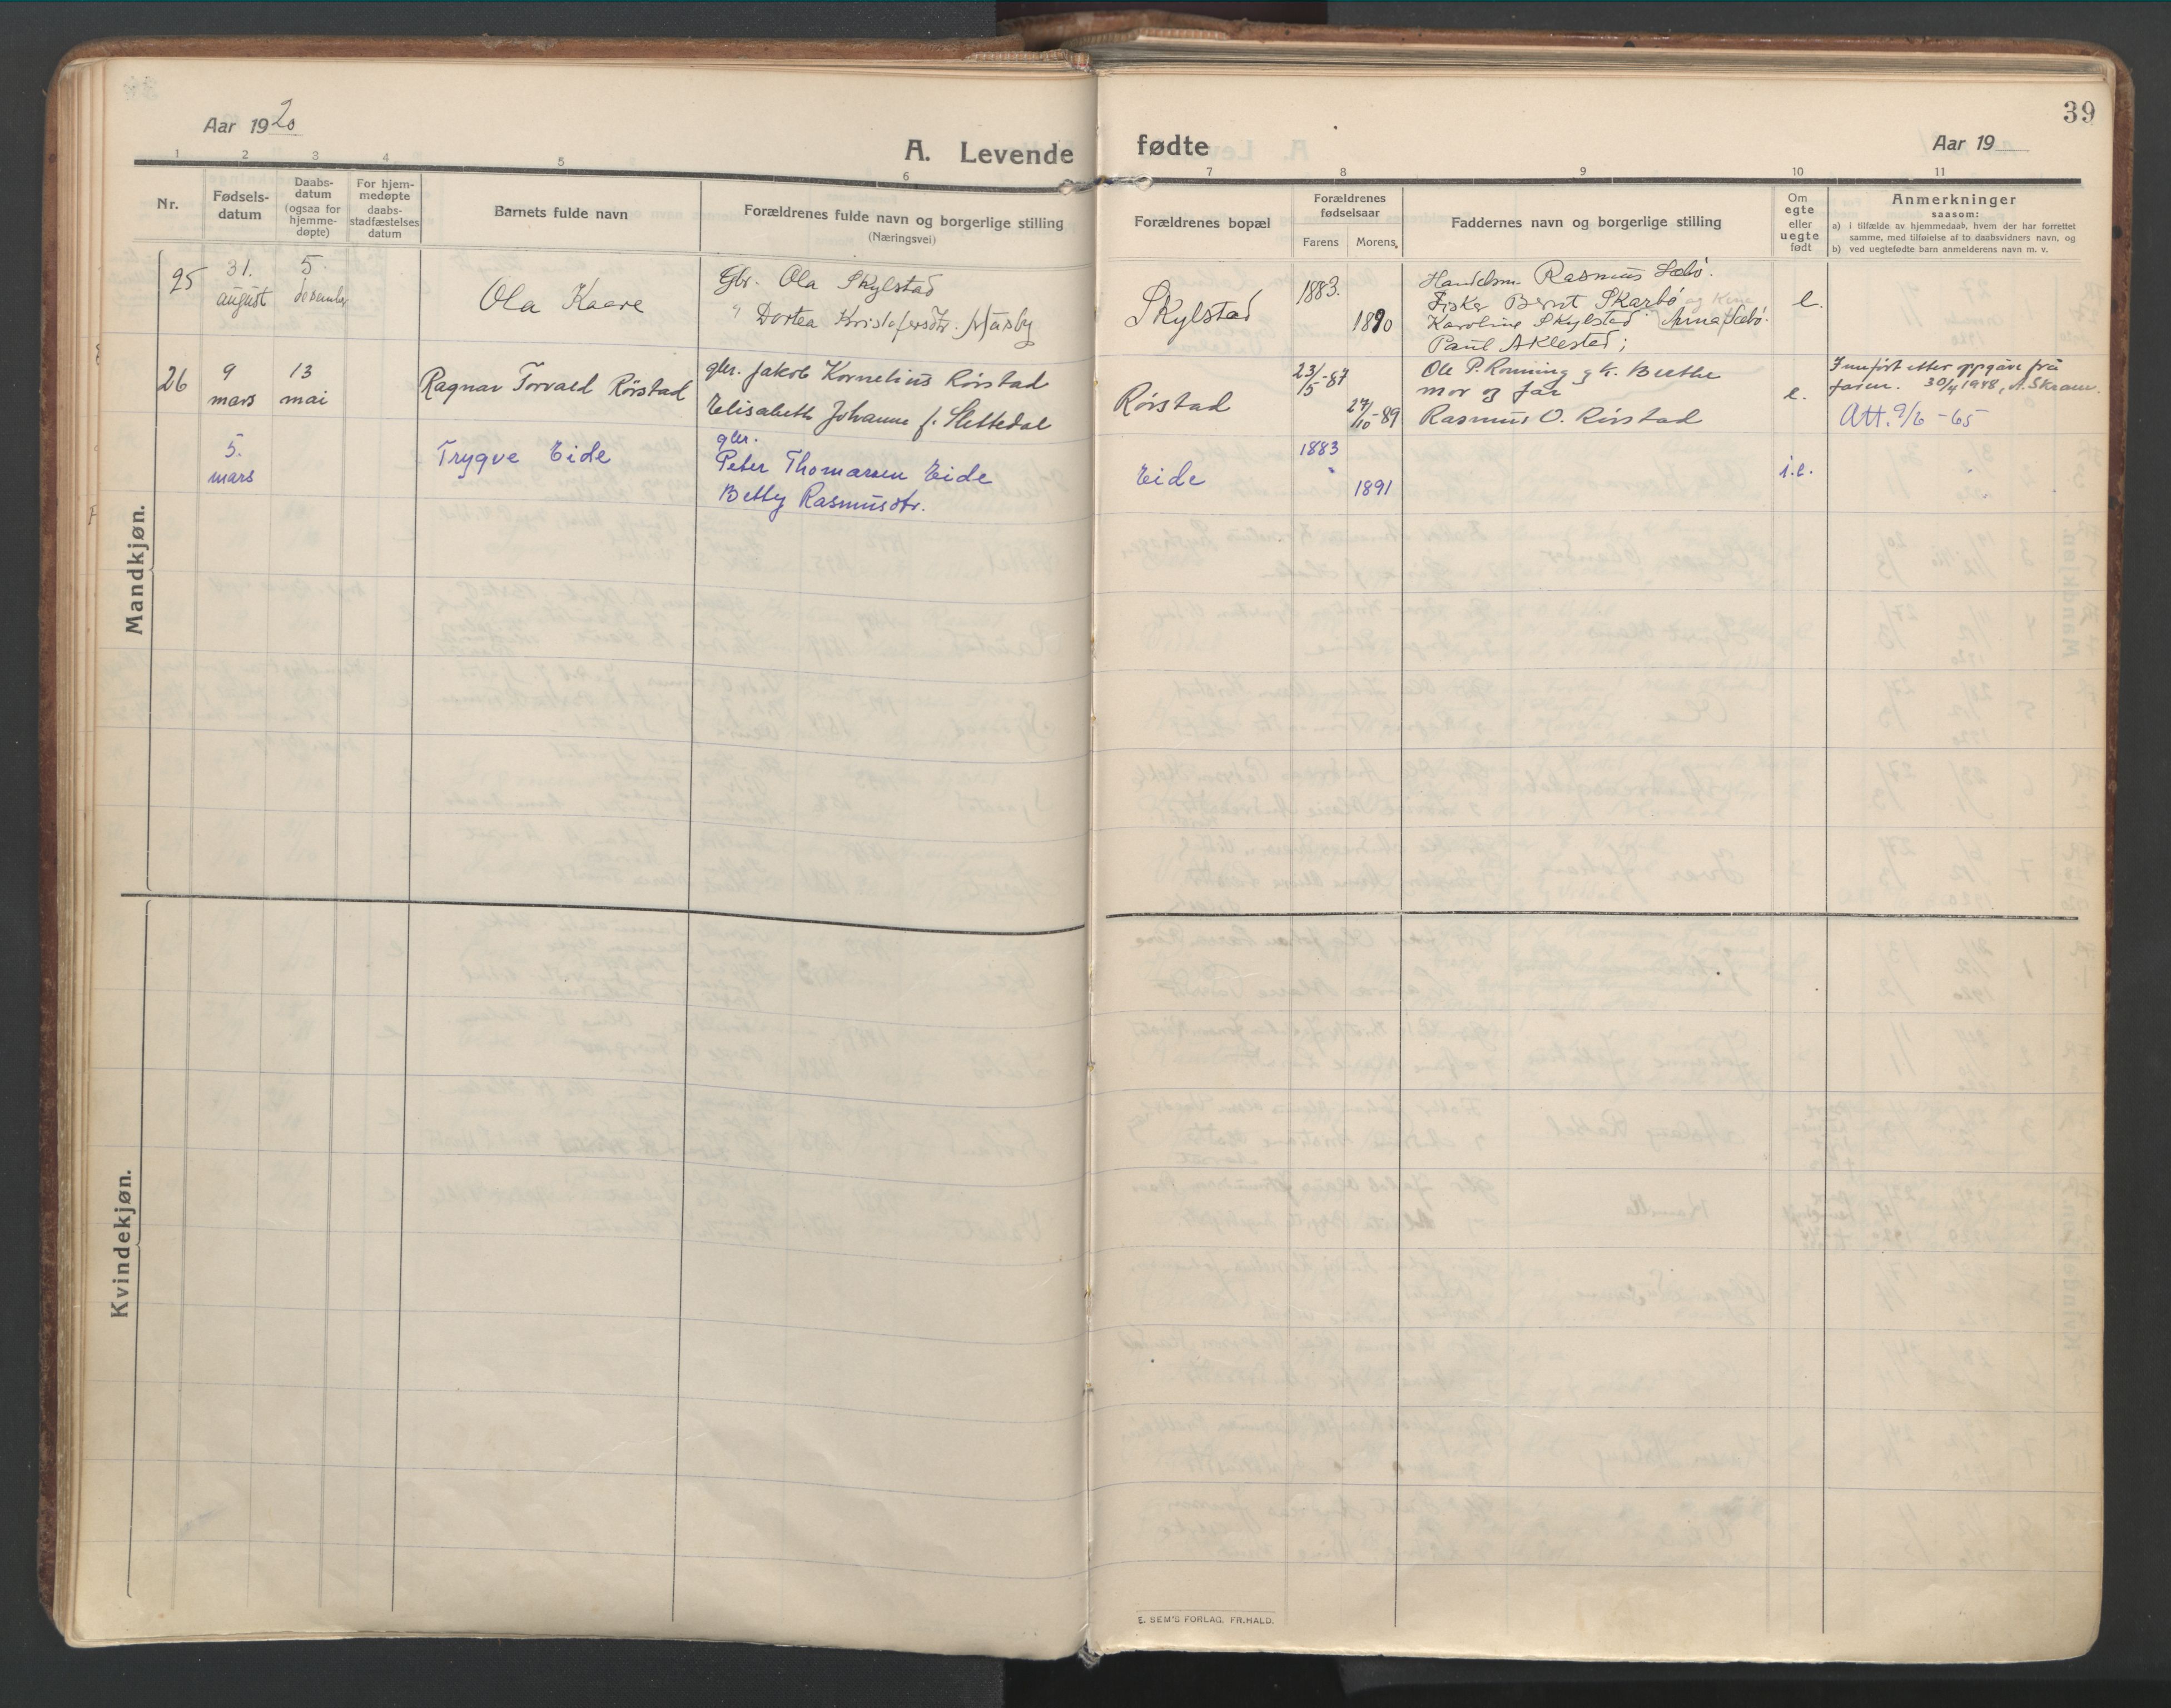 39
Aar 1920
A. Levende fødte
Aar 19
1 2 3 4 5 6 7 8 9 10 11
Nr.
Fødsels-
datum
Daabs-
datum
(ogsaa for
hjemme-
døpte)
For hjem-
medøpte
daabs-
stadfæstelses
datum
Barnets fulde navn
Forældrenes fulde navn og borgerlige stilling
(Næringsvei)
Forældrenes bopæl
Forældrenes
fødselsaar
Farens Morens
Faddernes navn og borgerlige stilling
Om
egte
eller
uegte
født
Anmerkninger
saasom:
a) i tilfælde av hjemmedaab, hvem der har forrettet
samme, med tilføielse af to daabsvidners navn, og
b) ved uegtefødte barn anmelderens navn m. v.
Mandkjøn.
25
31.
august
5.
desember
Ola Kaare
Gbr. Ola Skylstad
" Dortea Kristofersdtr.
Skylstad
1883.
1890
Handelsm. Rasmus Sæbö.
Fisker Bernt Skarbö og
Karoline Skylstad Anna Sæbö.
Paul Aklestad;
e.
26
9
mars
13
mai
Ragnar Torvald Rörstad
gbr. Jakob Kornelius Rörstad
Elisabeth Johanne f. Slettedal
Rörstad
23/5-87
27/10-89
Ole P. Ronning g k. Berthe
mor og far
Rasmus O. Rörstad
e.
Innfört etter oppgåve frå
faren. 30/4 1948, A. Skram.
Att. 9/6 - 65
5.
mars
Trygve Eide
gbr.
Peter Thomassen Eide
Betty Rasmusdtr.
Eide
1883
1891
i.e.
Kvindekjøn.
E. SEM'S FORLAG, FR.HALD.